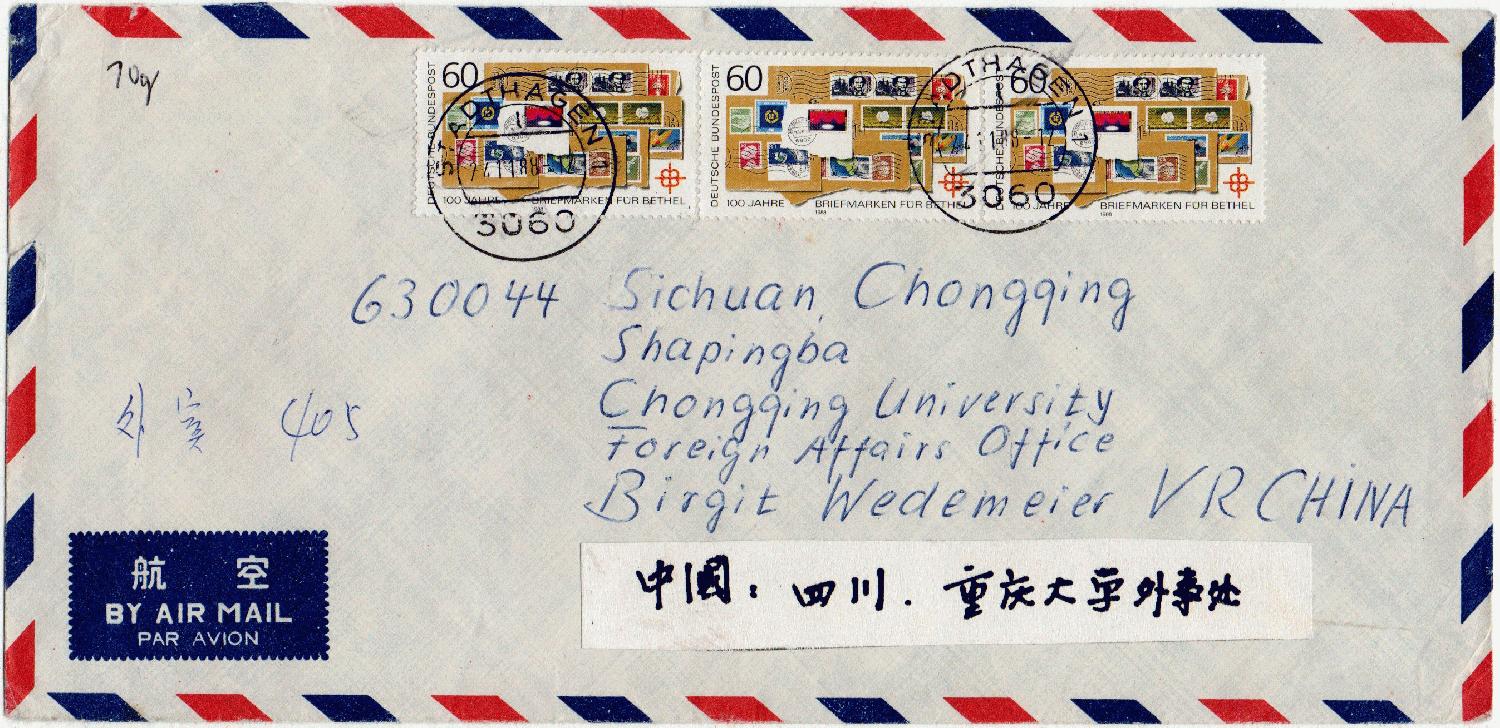 10g
60
DEUTSCHE BUNDESPOST
100 JAHRE BRIEFMARKEN FÜR BETHEL
STADTHAGEN 1
24.11.88-12
3060
60
DEUTSCHE BUNDESPOST
100 JAHRE BRIEFMARKEN FÜR BETHEL
1988
60
DEUTSCHE BUNDESPOST
100 JAHRE BRIEFMARKEN FÜR BETHEL
1988
STADTHAGEN 1
3060
630044 Sichuan, Chongqing
Shapingba
Chongqing University
Foreign Affairs Office
Birgit Wedemeier VR CHINA
外宾 405
中國: 四川. 重庆大学外事处
航 空
BY AIR MAIL
PAR AVION